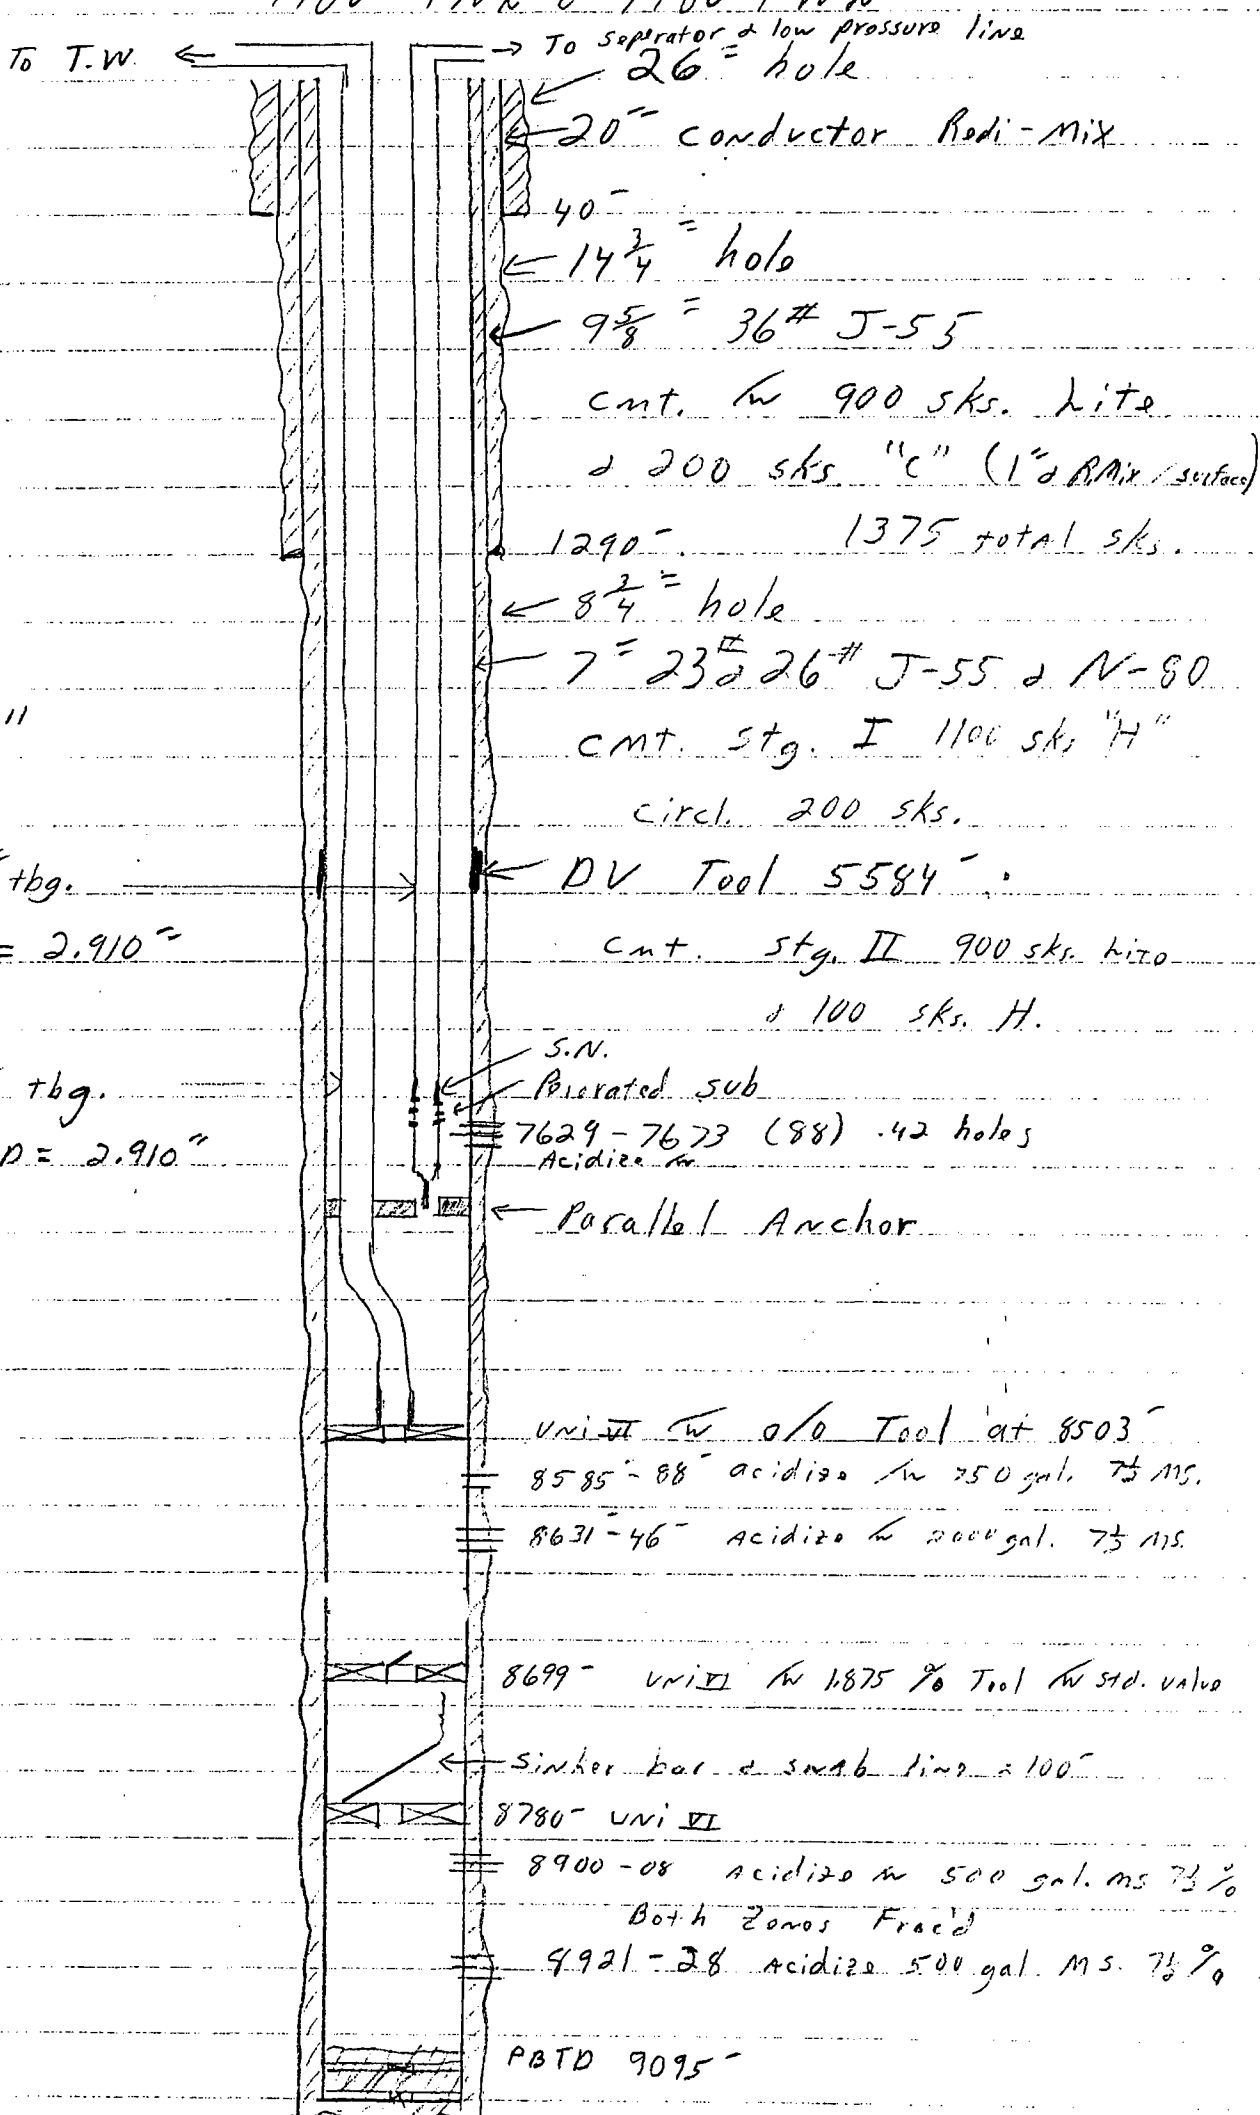 To T.W.
To Seperator & low pressure line
26" hole
20" conductor Redi-Mix
40'
14 3/4" hole
9 5/8" 36# J-55
cmt. w 900 sks. Lite
& 200 sks. "C" (1" & R.Mix / surface)
1290' 1375 total sks.
8 3/4" hole
7" 23# & 26# J-55 & N-80
"
cmt. stg. I 1100 sks "H"
circl. 200 sks.
tbg. DV Tool 5584'
= 2.910"
cmt. stg. II 900 sks. Lite
& 100 sks. H.
S.N.
tbg. sub
7629-7673 (88) .42 holes
D = 2.910" Acidize w
Parallel Anchor
Uni VI w o/o Tool at 8503'
8585'-88' acidize w 750 gal. 7½ MS.
8631'-46' Acidize w 2000 gal. 7½ MS.
8699' Uni VI w 1.875 o/o Tool w std. valve
Sinker bar & swab line ≈ 100'
8780' UNi VI
8900-08 Acidize w 500 gal. MS 7½ %
Both Zones Frac'd
8921-28 Acidize 500 gal. MS. 7½ %
PBTD 9095'